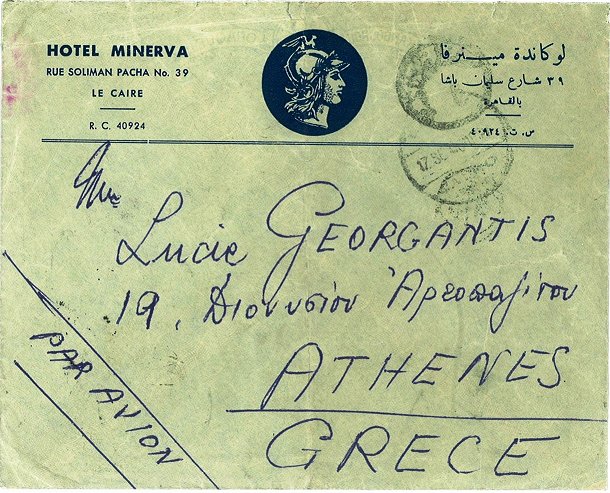 HOTEL MINERVA
RUE SOLIMAN PACHA No. 39
LE CAIRE
R. C. 40924
لوكاندة مينرفا
٣٩ شارع سليمان باشا
بالقاهرة
س. ت. ٤٠٩٢٤
Mme
Lucie GEORGANTIS
19, Διονυσίου Ἀρεοπαγίτου
ATHENES
GRECE
PAR AVION